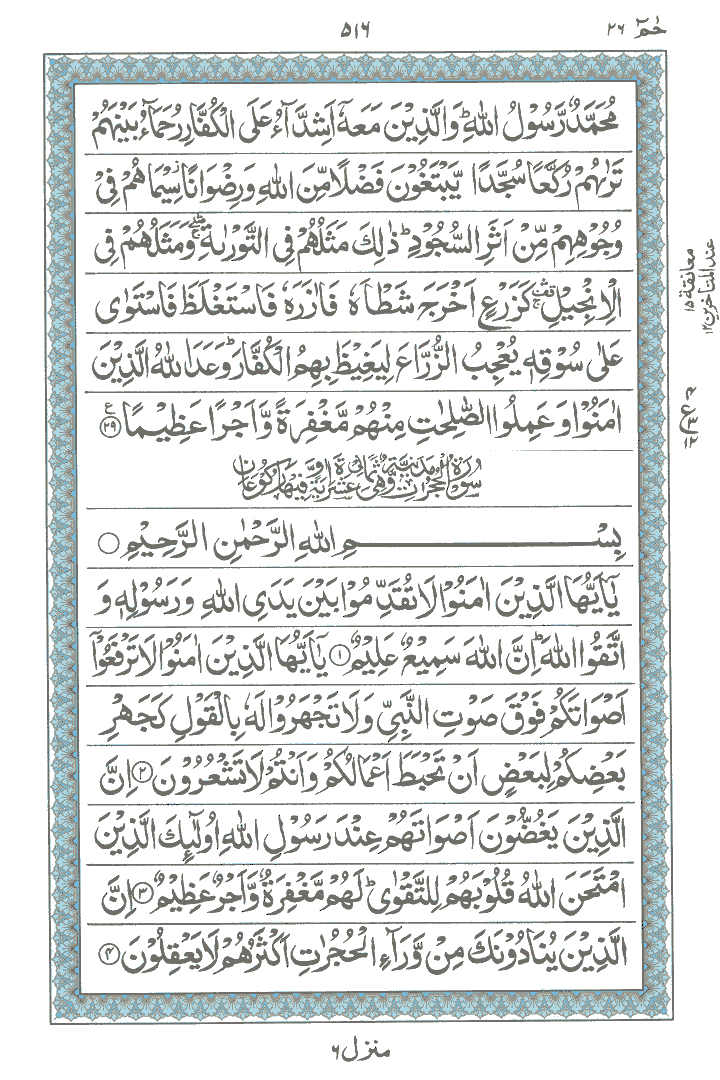 حٰمٓ ٢٦
٥١٦
مُحَمَّدٌ رَّسُوۡلُ اللّٰهِ ؕ وَالَّذِيۡنَ مَعَهٗۤ اَشِدَّآءُ عَلَى الۡكُفَّارِ رُحَمَآءُ بَيۡنَهُمۡ
تَرٰٮهُمۡ رُكَّعًا سُجَّدًا يَّبۡتَغُوۡنَ فَضۡلًا مِّنَ اللّٰهِ وَرِضۡوَانًا ؗ سِيۡمَاهُمۡ فِىۡ
وُجُوۡهِهِمۡ مِّنۡ اَثَرِ السُّجُوۡدِ ؕ ذٰ لِكَ مَثَلُهُمۡ فِى التَّوۡرٰٮةِ ۛۖۚ وَمَثَلُهُمۡ فِى
الۡاِنۡجِيۡلِ ۛۚ كَزَرۡعٍ اَخۡرَجَ شَطْئَهٗ فَاٰزَرَهٗ فَاسۡتَغۡلَظَ فَاسۡتَوٰى
عَلٰى سُوۡقِهٖ يُعۡجِبُ الزُّرَّاعَ لِيَـغِيۡظَ بِهِمُ الۡكُفَّارَ ؕ وَعَدَ اللّٰهُ الَّذِيۡنَ
اٰمَنُوۡا وَعَمِلُوا الصّٰلِحٰتِ مِنۡهُمۡ مَّغۡفِرَةً وَّاَجۡرًا عَظِيۡمًا ع ﴿٢٩﴾
سُوۡرَةُ الۡحُجُرٰتِ مَدَنِيَّةٌ وَّهِىَ ثَمَانِىَ عَشۡرَةَ اٰيَةً وَّفِيۡهَا رُكُوۡعَانِ
بِسۡمِ اللّٰهِ الرَّحۡمٰنِ الرَّحِيۡمِ ○
يٰۤاَيُّهَا الَّذِيۡنَ اٰمَنُوۡا لَا تُقَدِّمُوۡا بَيۡنَ يَدَىِ اللّٰهِ وَرَسُوۡلِهٖ وَ
اتَّقُوا اللّٰهَ ؕ اِنَّ اللّٰهَ سَمِيۡعٌ عَلِيۡمٌ ﴿١﴾ يٰۤاَيُّهَا الَّذِيۡنَ اٰمَنُوۡا لَا تَرۡفَعُوۡۤا
اَصۡوَاتَكُمۡ فَوۡقَ صَوۡتِ النَّبِىِّ وَلَا تَجۡهَرُوۡا لَهٗ بِالۡقَوۡلِ كَجَهۡرِ
بَعۡضِكُمۡ لِبَعۡضٍ اَنۡ تَحۡبَطَ اَعۡمَالُكُمۡ وَاَنۡتُمۡ لَا تَشۡعُرُوۡنَ ﴿٢﴾ اِنَّ
الَّذِيۡنَ يَغُضُّوۡنَ اَصۡوَاتَهُمۡ عِنۡدَ رَسُوۡلِ اللّٰهِ اُولٰٓٮِٕكَ الَّذِيۡنَ
امۡتَحَنَ اللّٰهُ قُلُوۡبَهُمۡ لِلتَّقۡوٰى ؕ لَهُمۡ مَّغۡفِرَةٌ وَّاَجۡرٌ عَظِيۡمٌ ﴿٣﴾ اِنَّ
الَّذِيۡنَ يُنَادُوۡنَكَ مِنۡ وَّرَآءِ الۡحُجُرٰتِ اَكۡثَرُهُمۡ لَا يَعۡقِلُوۡنَ ﴿٤﴾
معانقة ١٥
عند المتاخرين ١٢
منزل ٦